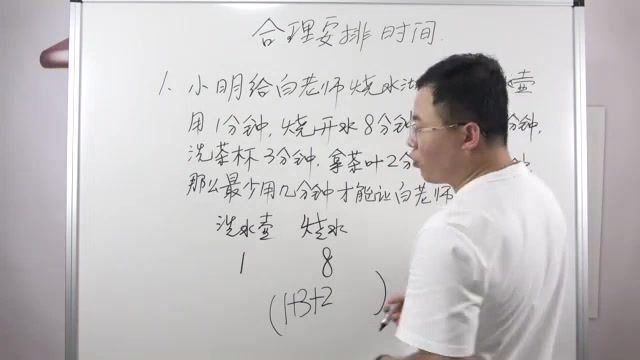 合理安排时间
1. 小明给白老师烧水 壶
用1分钟,烧开水8分钟 分钟,
洗茶杯3分钟,拿茶叶2分 钟,
那么最少用几分钟才能让白老师
洗水壶 烧水
1 8
(1+3+2 )